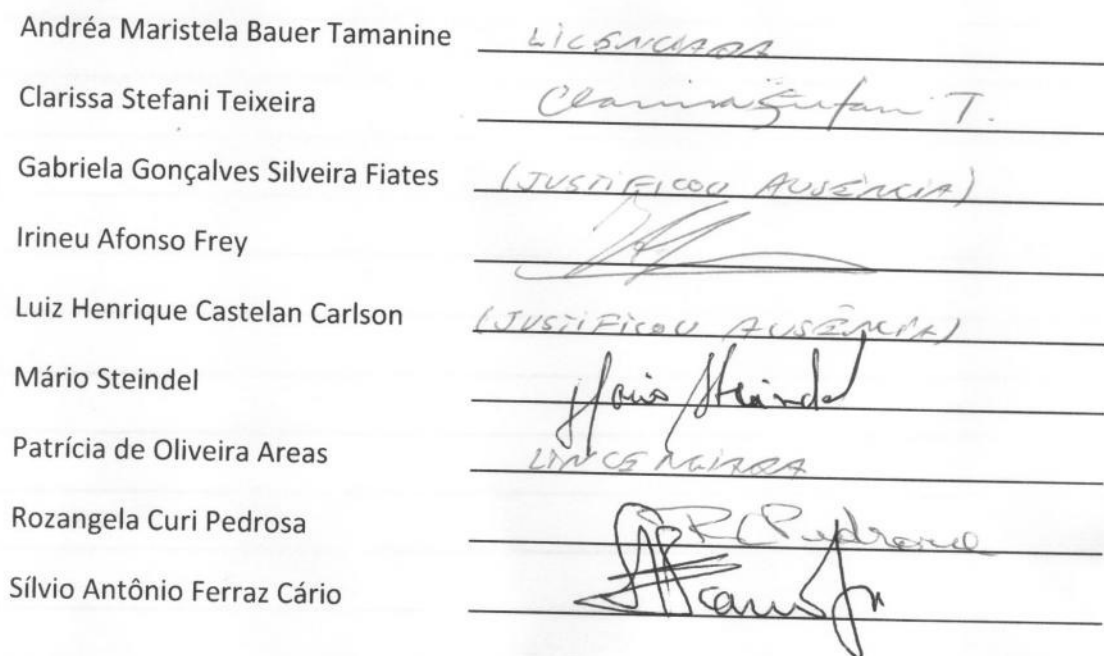 Andréa Maristela Bauer Tamanine LICENCIADA
Clarissa Stefani Teixeira Clarissa Stefani T.
Gabriela Gonçalves Silveira Fiates (JUSTIFICOU AUSÊNCIA)
Irineu Afonso Frey
Luiz Henrique Castelan Carlson (JUSTIFICOU AUSÊNCIA)
Mário Steindel Mario Steindel
Patrícia de Oliveira Areas LINCENCIADA
Rozangela Curi Pedrosa RCPedrosa
Sílvio Antônio Ferraz Cário